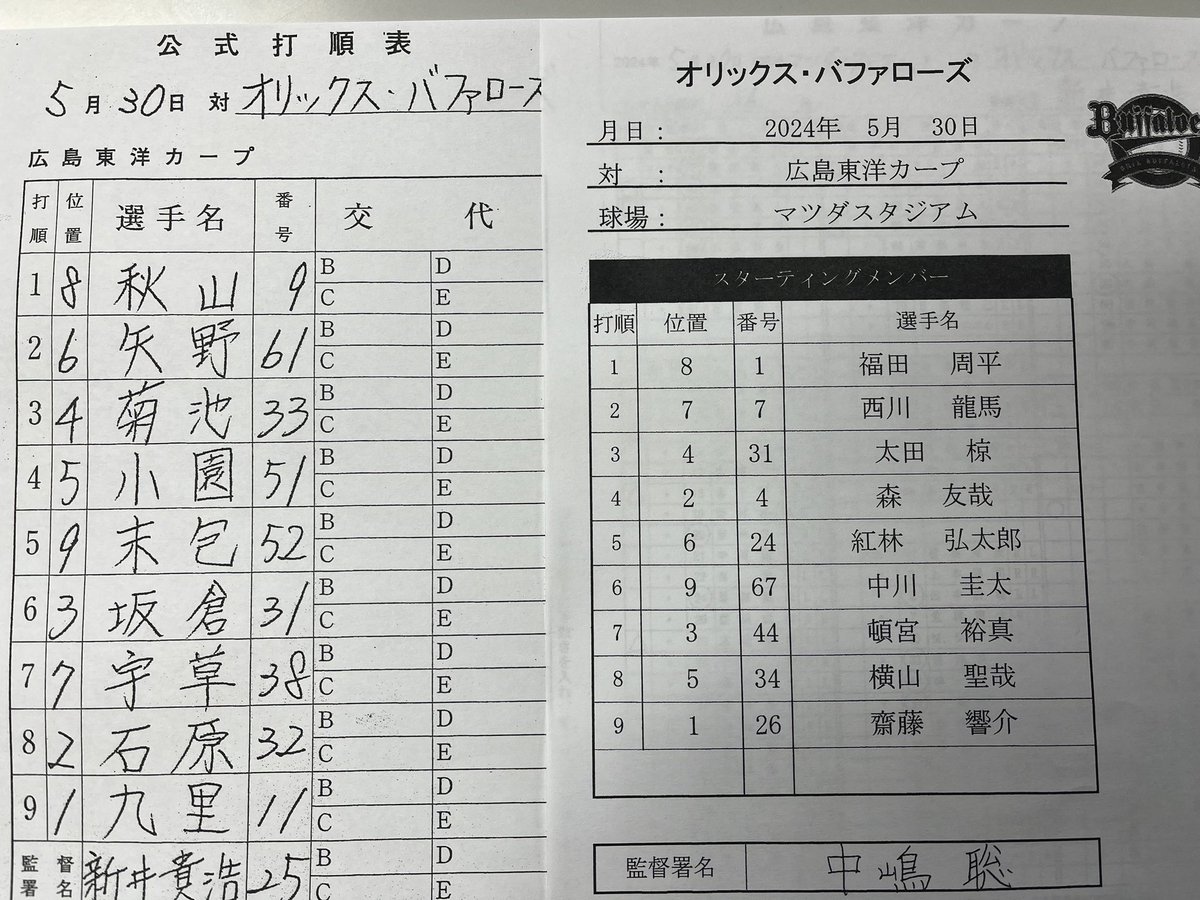 公式打順表
5月30日 対 オリックス・バファローズ
広島東洋カープ
打順 位置 選手名 番号 交代
1 8 秋山 9 B D C E
2 6 矢野 61 B D C E
3 4 菊池 33 B D C E
4 5 小園 51 B D C E
5 9 末包 52 B D C E
6 3 坂倉 31 B D C E
7 7 宇草 38 B D C E
8 2 石原 32 B D C E
9 1 九里 11 B D C E
監督署名 新井貴浩 25 B D C E
オリックス・バファローズ
Buffaloes
月日： 2024年 5月 30日
対 ： 広島東洋カープ
球場： マツダスタジアム
スターティングメンバー
打順 位置 番号 選手名
1 8 1 福田 周平
2 7 7 西川 龍馬
3 4 31 太田 椋
4 2 4 森 友哉
5 6 24 紅林 弘太郎
6 9 67 中川 圭太
7 3 44 頓宮 裕真
8 5 34 横山 聖哉
9 1 26 齋藤 響介
監督署名 中嶋 聡